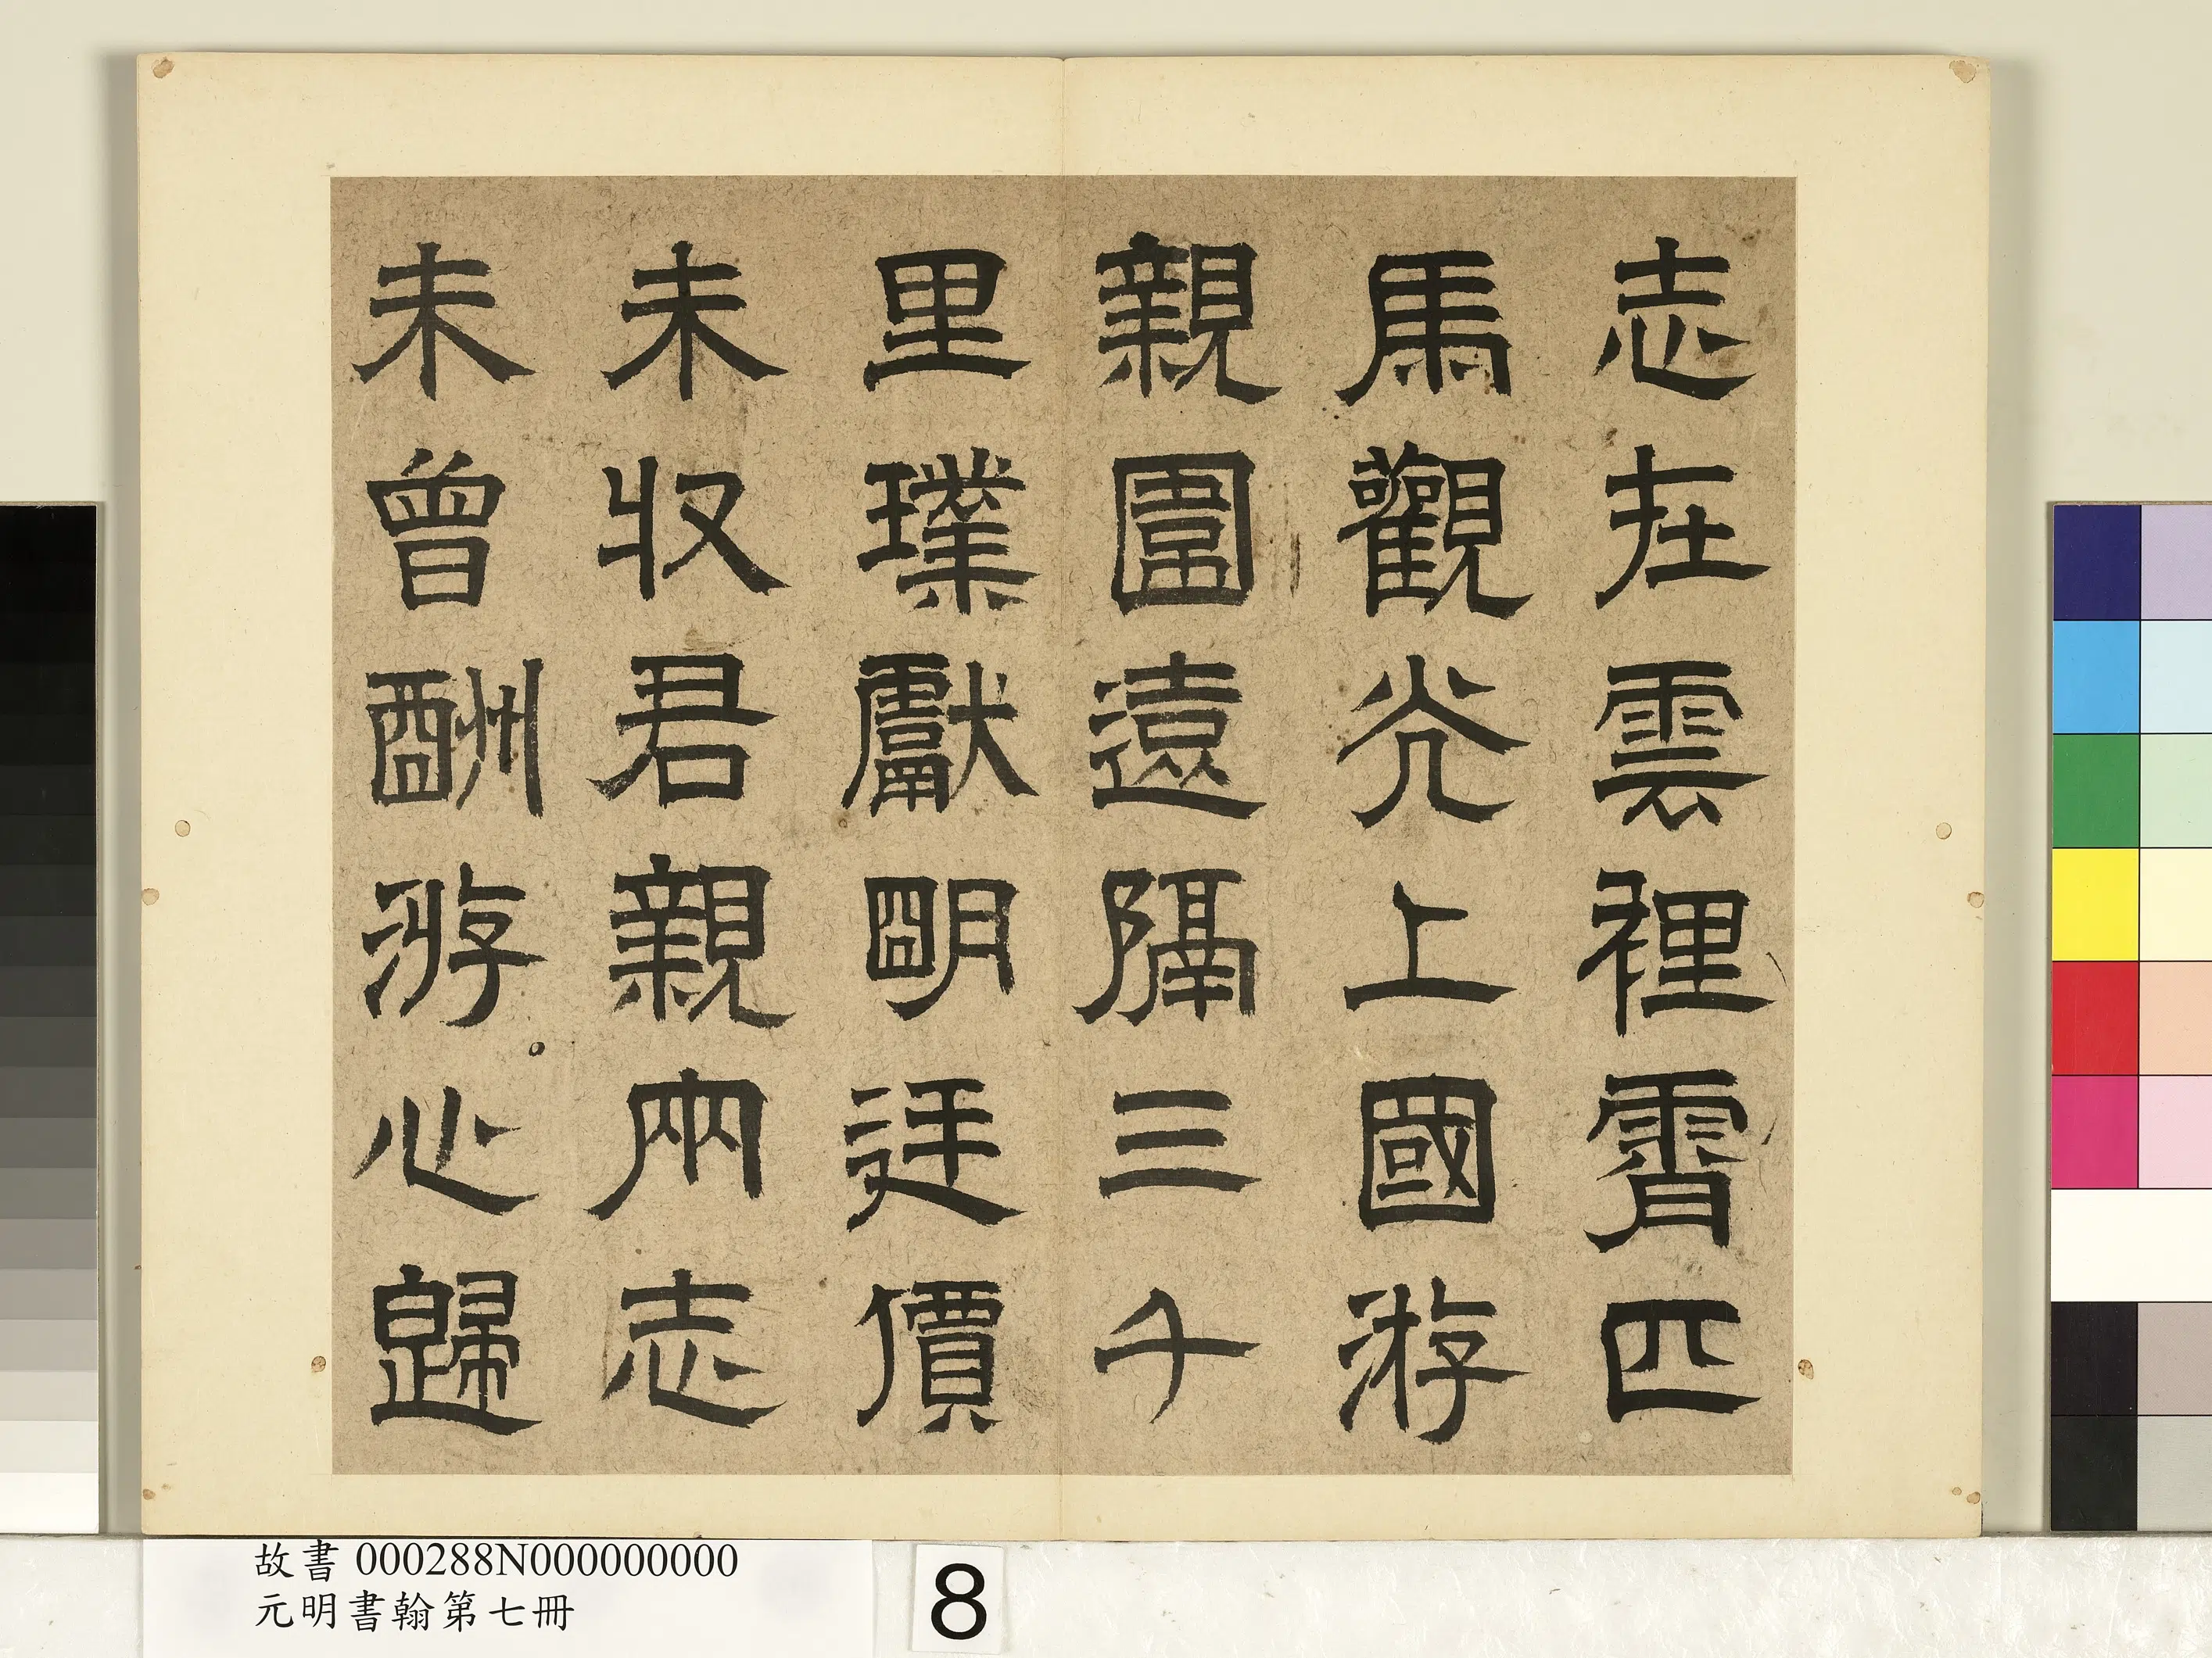 志在雲裡霄匹
馬觀光上國游
親圍遠隔三千
里璞獻明廷價
未收君親兩志
未曾酬游心歸
故書 000288N000000000
元明書翰第七冊
8